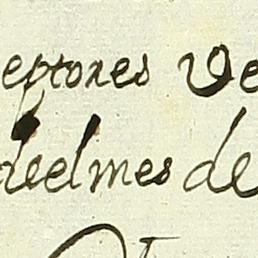 eptores ve
del mes de